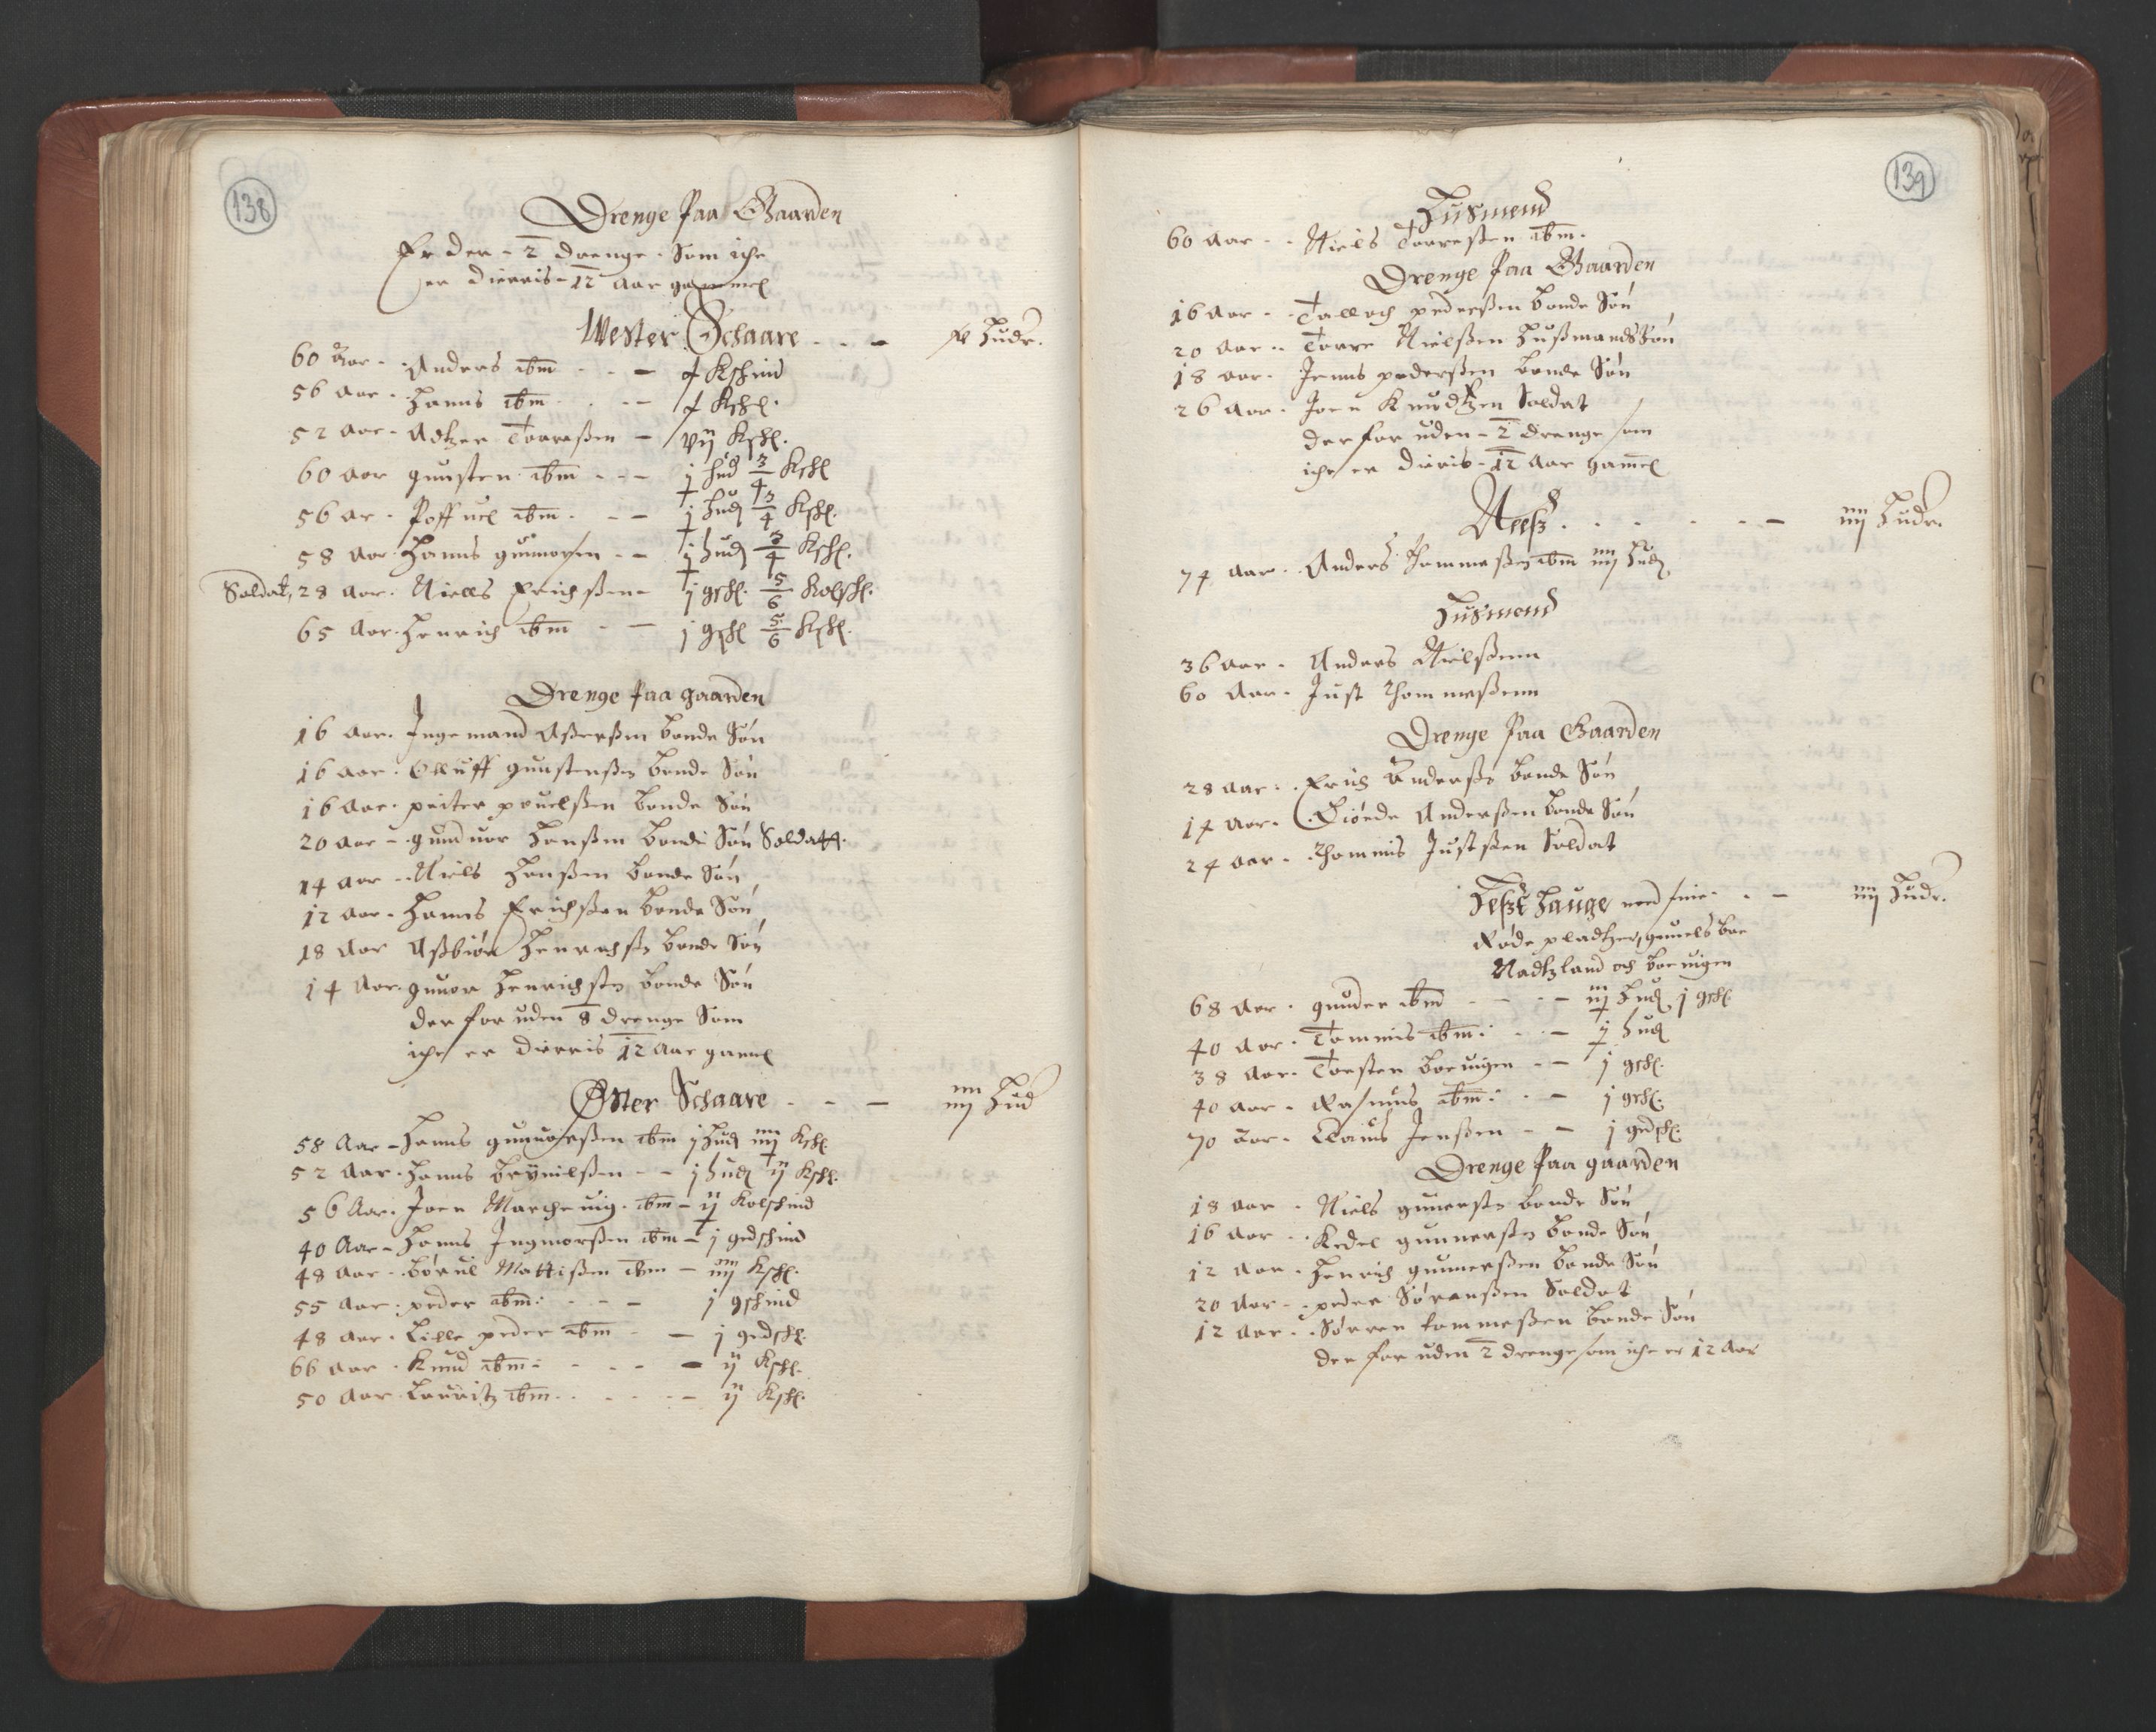 138
Drenge paa Gaarden
Er der - 2 drenge som iche
er dierris - 12 Aar gammel
Wester Schaare - - - Hudr.
60 Aar - Anders ibm - - - Kschind
56 Aar - Hanns ibm - - Kschl.
52 aar - Adtzer Torressen - vij Kschl.
60 aar gunsten ibm - - - j hud 3/4 Kschl
56 ar - ibm - - - j hud 3/4 Kschl.
58 Aar Hanns - - j hud 3/4 Kschl.
Soldat, 28 Aar. Niells Erichssen - j gschl. 5/6 Kolschl.
65 Aar. Henrich ibm - - j gschl 5/6 Kschl.
Drenge paa gaarden
16 Aar. Ingemand Asserssen bonde Søn
16 aar. Olluff gunstenssen bonde Søn
16 Aar. peiter pouelssen bonde Søn
20 aar - gunduor Hanssen bonde Søn Soldatt.
14 aar - Niels Hanssen bonde Søn
12 aar - Hanns Erichssen bonde Søn
18 Aar Assbiørn Henrichssen bonde Søn
14 Aar. gunor Henrichssen bonde Søn
der for uden 8 drenge Som
iche er dierris 12 Aar gamel
Øster Schaare - - - iiij Hud
58 Aar - Hanns gunuorssen ibm j Hud iiij Kschl
52 Aar. Hanns brynilssen - - j hud ij Kschl.
56 Aar. Joen Marcheuig. ibm - ij Kolschind
40 Aar - Hanns Ingmorssen ibm - j gedschind
48 Aar - børuil Mattissen ibm - iiij Kschl.
55 Aar. peder ibm: - - - j gschind
48 aar. Lille peder ibm - - j gedschl.
66 aar. Knud ibm: - - - - ij Kschl.
50 Aar Lauritz ibm. - - - ij Kschl.
139
Husmend
60 Aar - - Niels Torressen ibm.
Drenge paa Gaarden
16 Aar - Talloch pederssen bonde Søn
20 Aar - Torre Nielssen Hussmands Søn
18 aar - Jenns pederssen bonde Søn
26 Aar. Joen Knudtzen Soldat
der for uden - 2 drenge som
iche er dieris - 12 Aar gamel
Neess. - - - - - iiij Hudr.
74 Aar. Anders Tommessen ibm iiij Hud
Husmend
36 aar - Anders Nielssenn
60 Aar. Just Thommessenn
Drenge paa Gaarden
28 aar. Erich Anderssen bonde Søn
14 Aar. Giøede Anderssen bonde Søn
24 aar - Thommis Justssen Soldat
Hauge med sine - - iiij Hudr.
Øde pladtzer, boe
Nadtzland och boeuigen
68 Aar. gunder ibm - - - - iij Hud j gschl.
40 Aar. Tommis ibm: - - - j hud
38 Aar. Torsten boeuigen - - j gschl.
40 aar - Rasmus ibm: - - j gschl.
70 Aar - Claus Jenssen - - j gedschl.
Drenge paa gaarden
18 aar - Niels gunerssen bonde Søn
16 aar - Kedel gunnerssen bonde Søn
12 Aar - Henrich gunnerssen bonde Søn
20 Aar - peder Sørenssen Soldat
12 aar. Sørren tommessen bonde Søn
der for uden 2 drenge som iche er 12 Aar